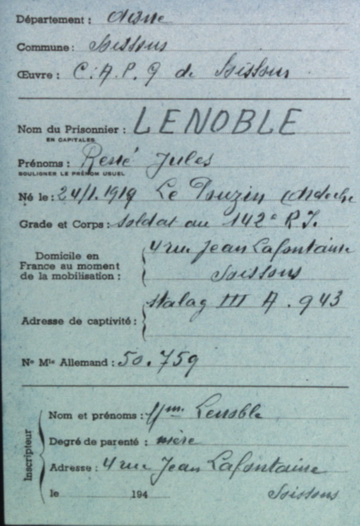 Département : Aisne
Commune : Soissons
Œuvre : C.A.P.G de Soissons
Nom du Prisonnier : LENOBLE
EN CAPITALES
Prénoms : René Jules
SOULIGNER LE PRÉNOM USUEL
Né le : 24/1.1919 Le Pouzin (Ardèche
Grade et Corps : soldat au 142e R.I.
Domicile en
France au moment
de la mobilisation :
4 rue Jean Lafontaine
Soissons
Adresse de captivité : Stalag III A . 943
No Mle Allemand : 50.759
Inscripteur
Nom et prénoms : Mme Lenoble
Degré de parenté : mère
Adresse : 4 rue Jean Lafontaine
le 194 Soissons